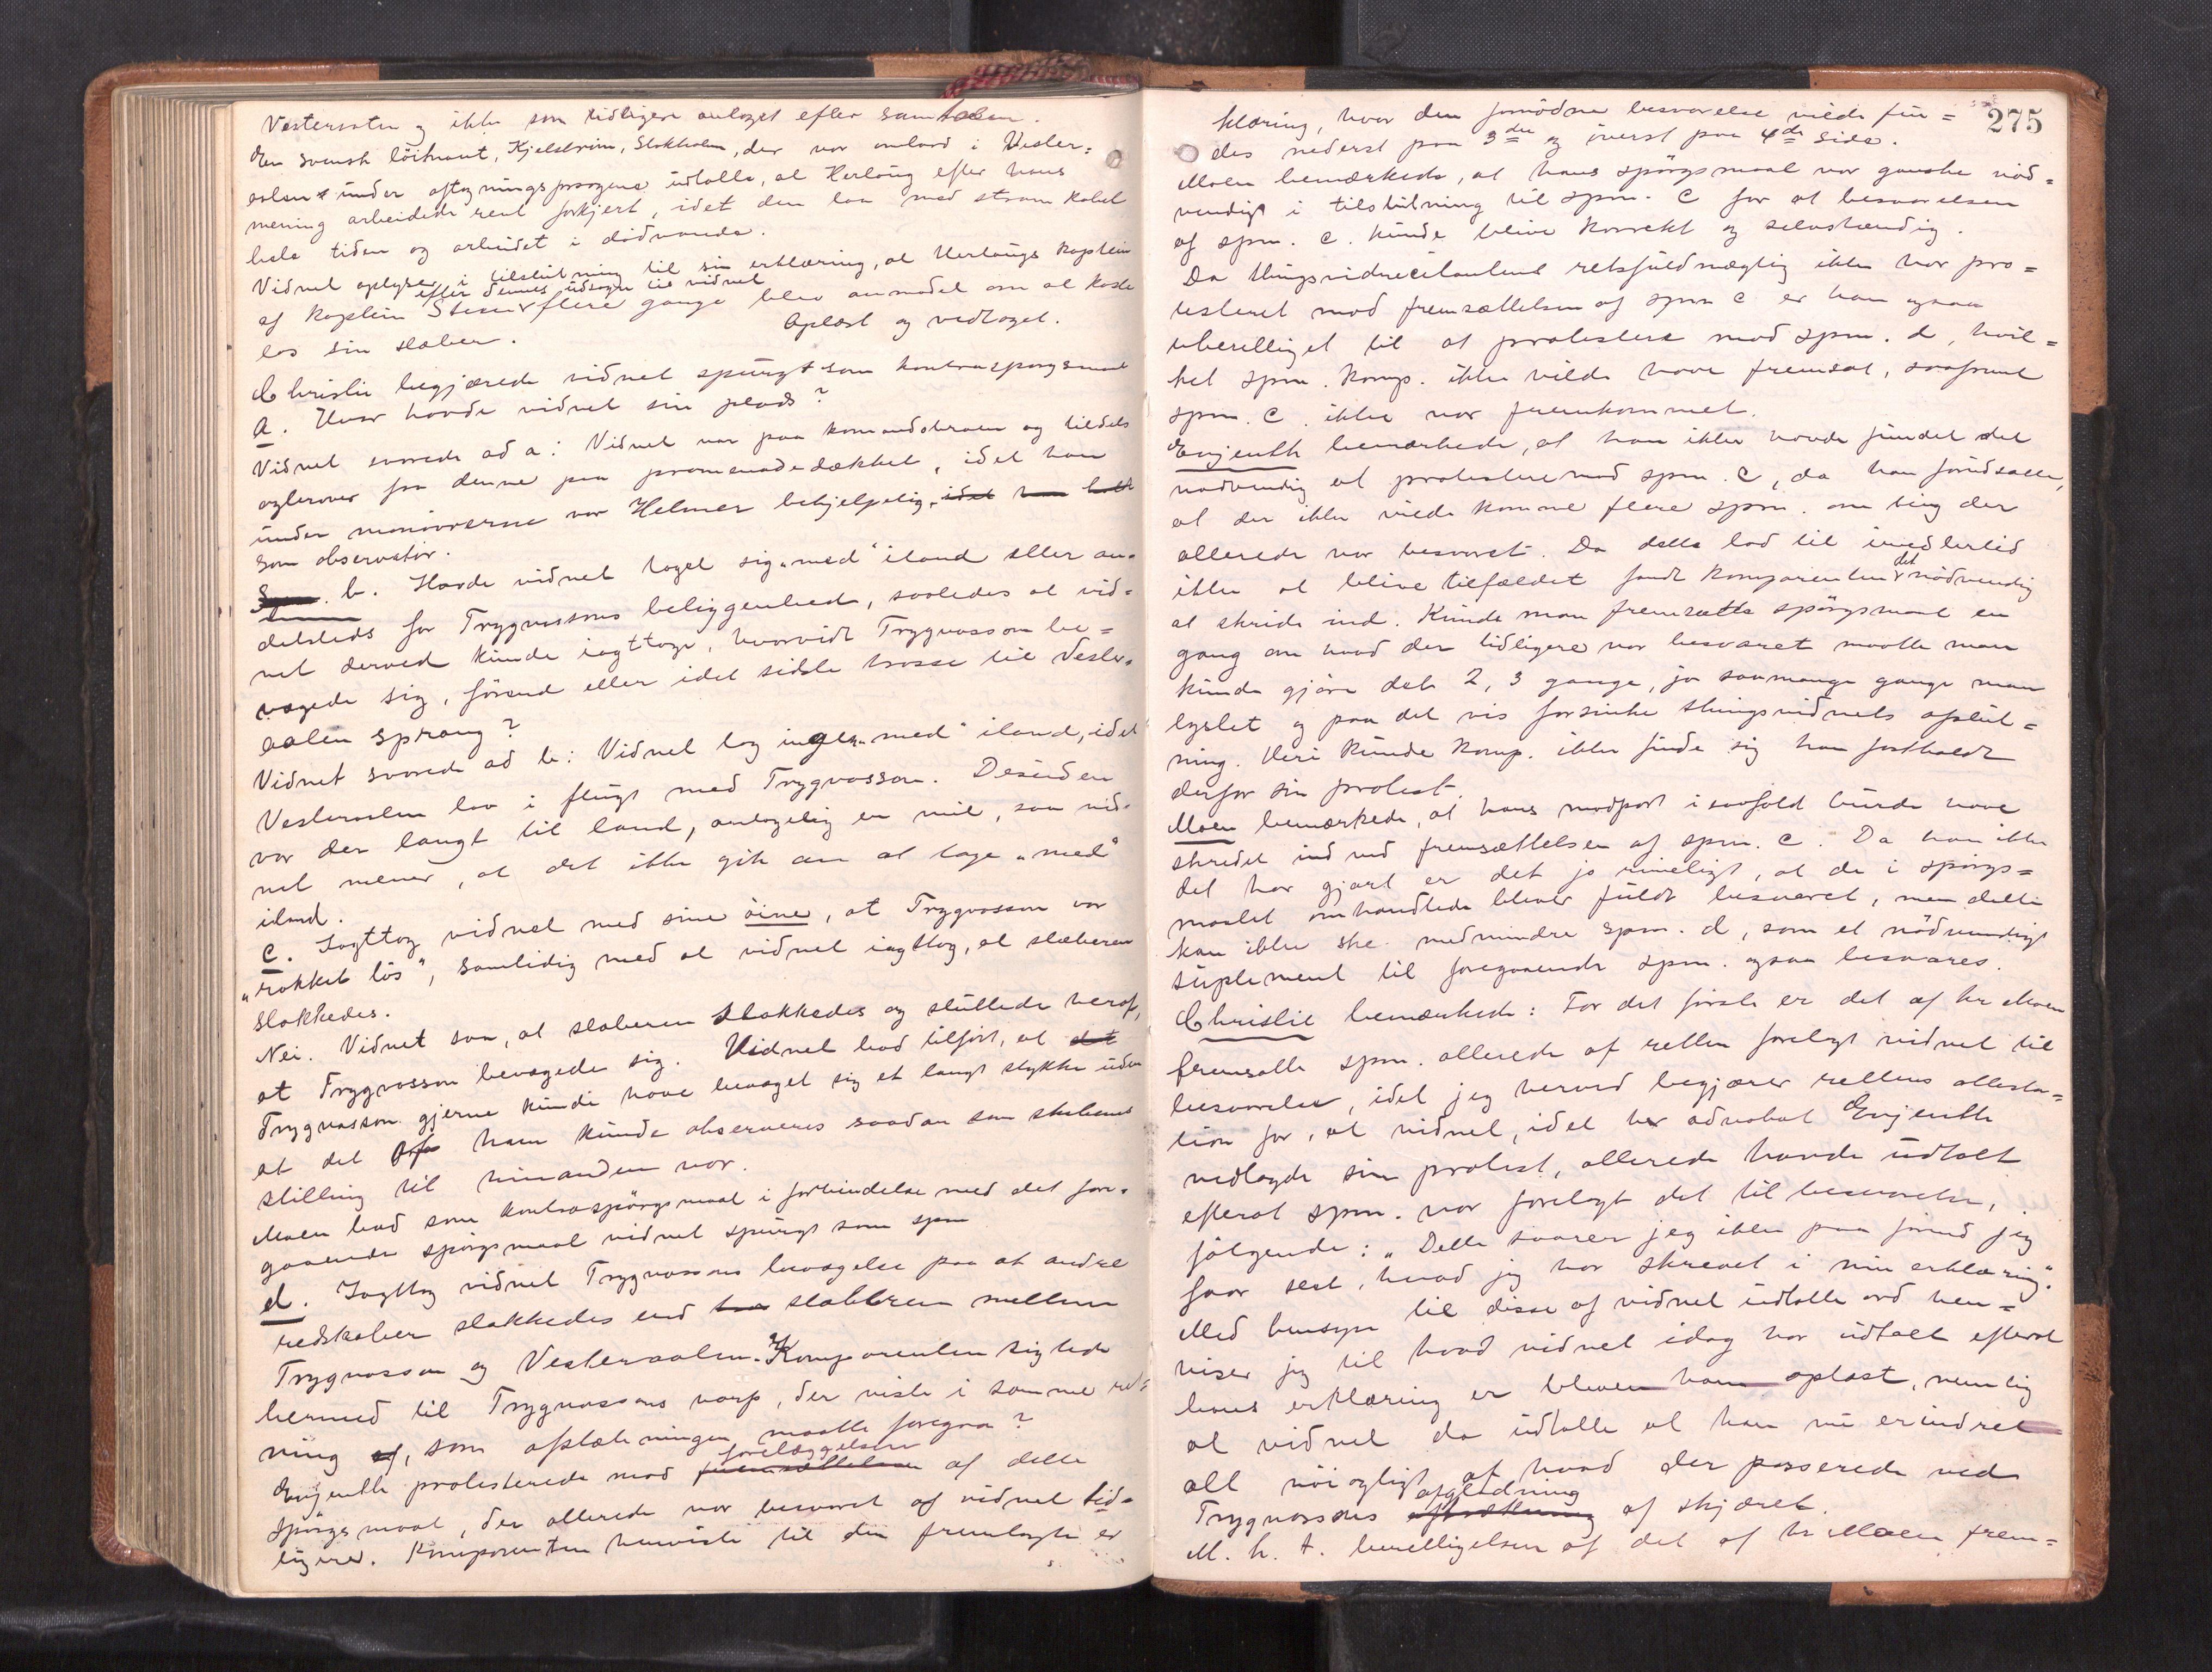 Vesteraalen og ikke som tidligere antaget efter samtalen.
En svensk löitnant, Kjelström, Stokholm, der var ombord i Vester=
aalen under aftagningsprøvene udtalte, at Herlaug efter hans
mening arbeidede rent forkjert, idet den laa med stram kabel
hele tiden og arbeidet i dödvande.
Vidnet oplyser i tilslutning til sin erklæring, at Herlaugs kaptein
efter dennes udsagn til vidnet
af kaptein Steen flere gange blev anmodet om at kaste
los sin slæber. Oplæst og vedtaget.
Christie begjærede vidnet spurgt som kontraspörgsmaal
a. Hvor havde vidnet sin plads?
Vidnet svarede ad a: Vidnet var paa komandobroen og tildels
agterover fra denne paa promenadedækket, idet han
under manövrerne var Helmer behjelpelig, idet han holdt
som observatör.
Spm. b. Havde vidnet taget sig "med" iland eller an=
detsteds for Trygvassons beliggenhed, saaledes at vid=
net derved kunde iagttage, hvorvidt Trygvasson be=
vægede sig, förend eller idet sidste trosse til Vester=
aalen sprang?
Vidnet svarede ad b: Vidnet tog ingen "med" iland, idet
Vesteraalen laa i flugt med Trygvasson. Desuden
var der langt til land, antagelig en mil, saa vid=
net mener, at det ikke gik an at tage "med"
iland.
c. Iagttog vidnet med sine öine, at Trygvasson var
"rokket lös", samtidig med at vidnet iagttog, at slæberen
slakkedes.
Nei. Vidnet saa, at slæberen slakkedes og sluttede heraf,
at Trygvasson bevægede sig. Vidnet bad tilfört, at det
Trygvasson gjerne kunde have bevæget sig et langt stykke uden
at det af ham kunde observeres saadan som skibenes
stilling til hinanden var.
Moen bad som kontraspörgsmaal i forbindelse med det fore=
gaaende spörgsmaal vidnet spurgt som spm
d. Iagttog vidnet Trygvassons bevægelse paa at andre
redskaber slakkedes end slæberen mellem
Trygvasson og Vesteraalen. Komparenten sigtede
hermed til Trygvassons varp, der viste i samme ret=
ning af, som afslæbningen maatte foregaa?
forelæggelsen
Enjenth protesterede mod fremsættelsen af dette
spörgsmaal, der allerede var besvaret af vidnet tid=
ligere. Komparenten henviste til den fremlagte er
275
klæring, hvor den fornödne besvarelse vilde fin=
des nederst paa 3die og överst paa 4de side.
Moen bemærkede, at hans spörgsmaal var ganske nöd=
vendigt i tilslutning til spm. c for at besvarelsen
af spm. c. kunde blive korrekt og selvstændig.
Da thingsvidnecitantens retsfuldmægtig ikke har pro=
testeret mod fremsættelsen af spm c er han ogsaa
uberettiget til at protestere mod spm. d, hvil=
ket spm. komp. ikke vilde have fremsat, saafremt
spm. c. ikke var fremkommet.
Enjenth bemærkede, at han ikke havde fundet det
nödvendig at protestere mod spm. c, da han forudsatte,
at der ikke vilde komme flere spm. om ting der
allerede var besvaret. Da dette lod til imidlertid
det
ikke at blive tilfældet fandt komparenten nödvendig
at skride ind. Kunde man fremsætte spörgsmaal en
gang om hvad der tidligere var besvaret maatte man
kunde gjöre det 2, 3 gange, ja saamange gange man
lystet og paa det vis forsinke thingsvidnets afslut=
ning. Heri kunde komp. ikke finde sig han fastholdt
derfor sin protest.
Moen bemærkede, at hans modpart isaafald burde have
skredet ind ved fremsættelsen af spm. c. Da han ikke
det har gjort er det jo rimeligt, at de i spörgs=
maalet omhandlede bliver fuldt besvaret, men dette
kan ikke ske medmindre spm. d, som et nödvendigt
suplement til foregaaende spm. ogsaa besvares.
Christie bemærkede: For det förste er det af hr Moen
fremsatte spm. allerede af retten forelagt vidnet til
besvarelse, idet jeg herved begjærer rettens attesta=
tion for, at vidnet, idet hr advokat Enjenth
nedlagde sin protest, allerede havde udtalt
efterat spm. var forelagt det til besvarelse,
fölgende: "Dette svarer jeg ikke paa förend jeg
faar sest, hvad jeg har skrevet i min erklæring".
Med hensyn til disse af vidnet udtalte ord hen=
viser jeg til hvad vidnet idag har udtalt efterat
hans erklæring er bleven ham oplæst, nemlig
at vidnet da udtalte at han nu erindret
alt nöiagtigt af hvad der passerede ved
afglidning
Trygvassons aftrækning af skjæret.
M. h. t. berettigelsen af det af hr Moen frem=